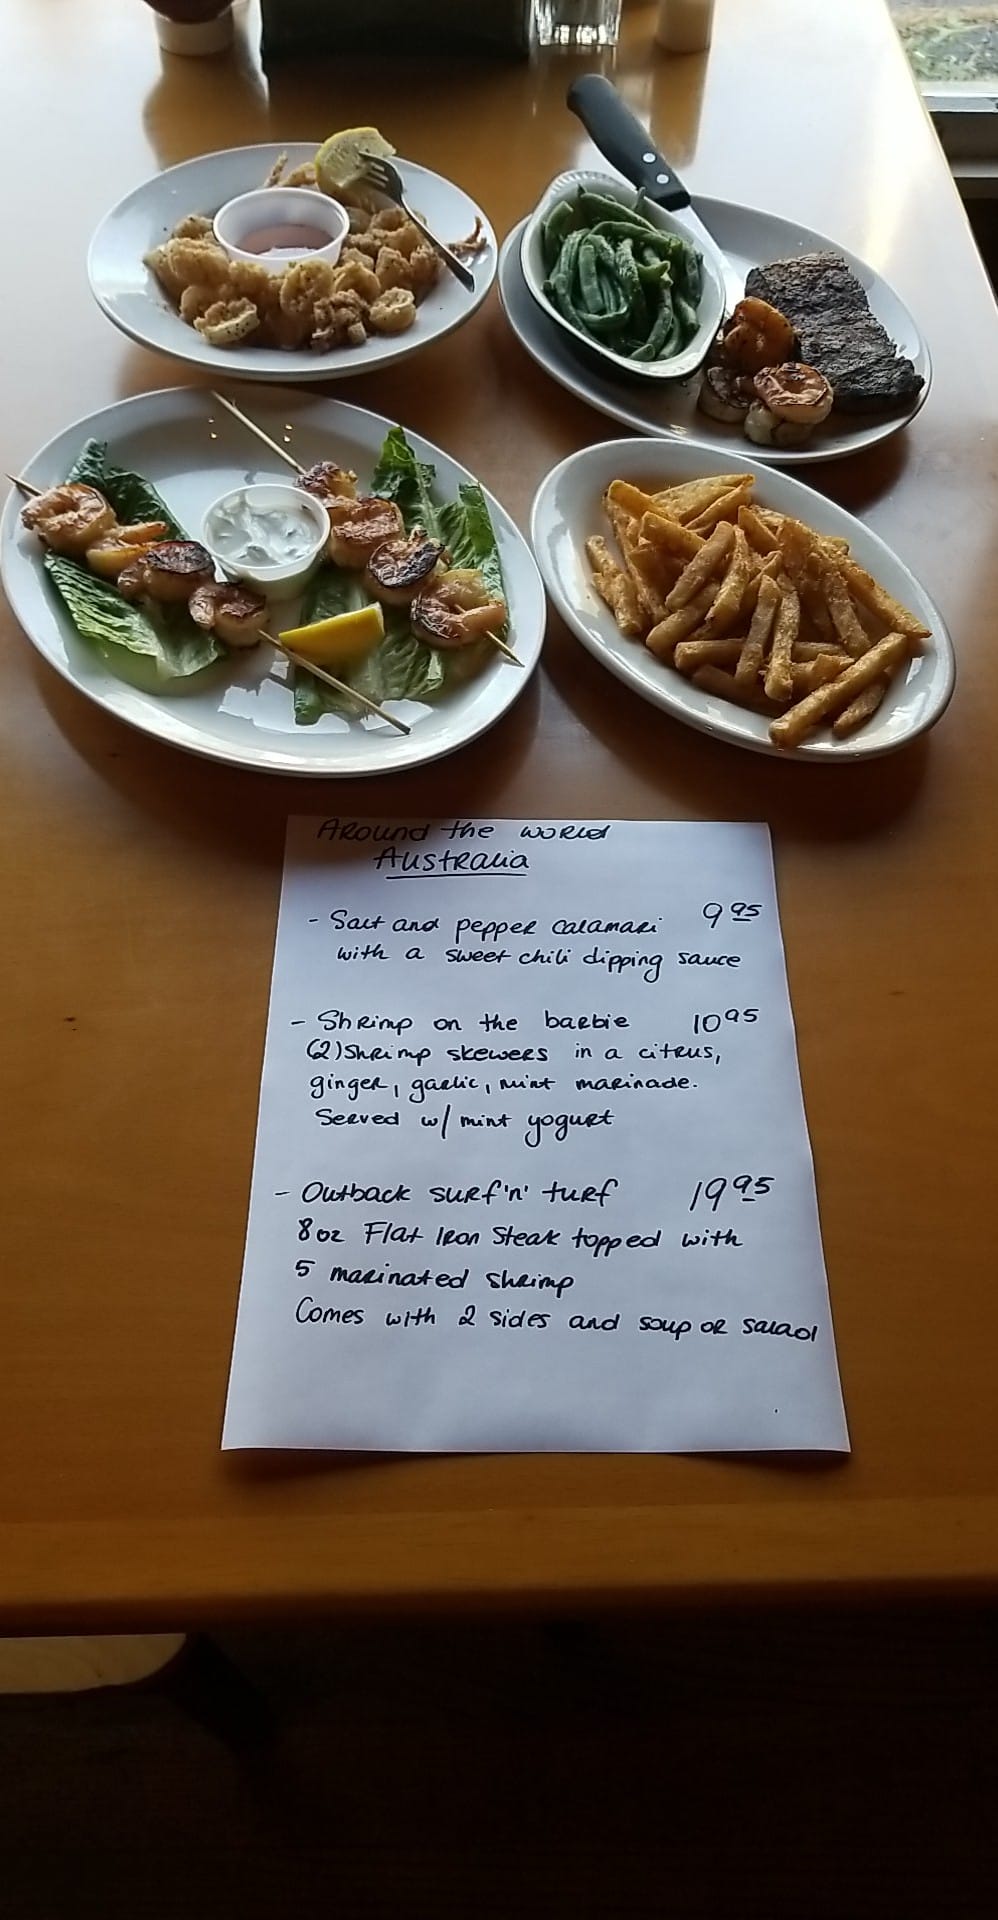 Around the world
Australia
- Salt and pepper calamari 9.95
with a sweet chili dipping sauce
- Shrimp on the barbie 10.95
(2) Shrimp skewers in a citrus,
ginger, garlic, mint marinade.
Served w/ mint yogurt
- Outback surf'n'turf 19.95
8oz Flat Iron Steak topped with
5 marinated shrimp
Comes with 2 sides and soup or salad